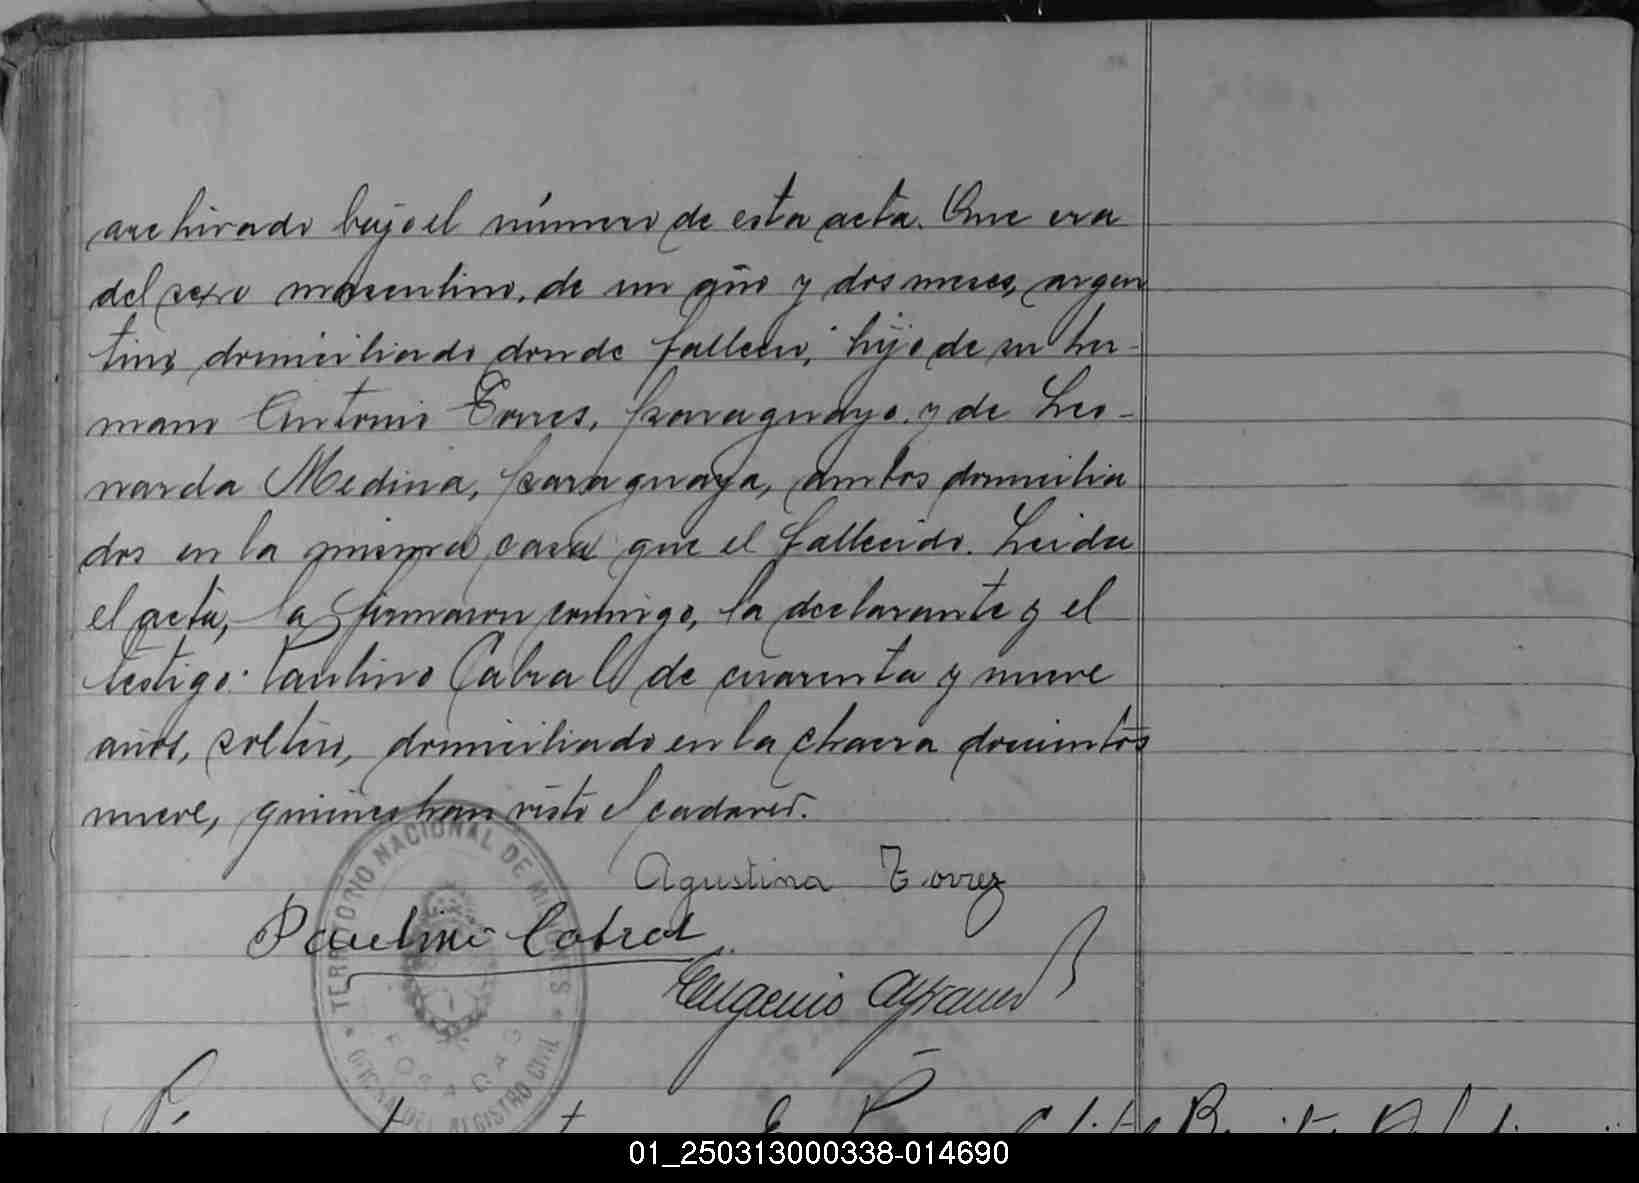 archivado bajo el número de esta acta. Que era
del sexo masculino, de un año y dos meses, argen
tino, domiciliado donde falleció, hijo de su her-
mano Antonio Torres, paraguayo, y de Leo-
narda Medina, paraguaya, ambos domicilia
dos en la misma casa que el fallecido. Leida
el acta, la firmaron conmigo, la declarante y el
testigo: Paulino Cabral de cuarenta y nueve
años, soltero, domiciliado en la chacra docientos
nueve, quienes han visto el cadaver.
Agustina Torrez
Paulino Cabral
Eugenio
TERRITORIO NACIONAL DE MISIONES
POSADAS
OFICINA DEL REGISTRO CIVIL
01_250313000338-014690